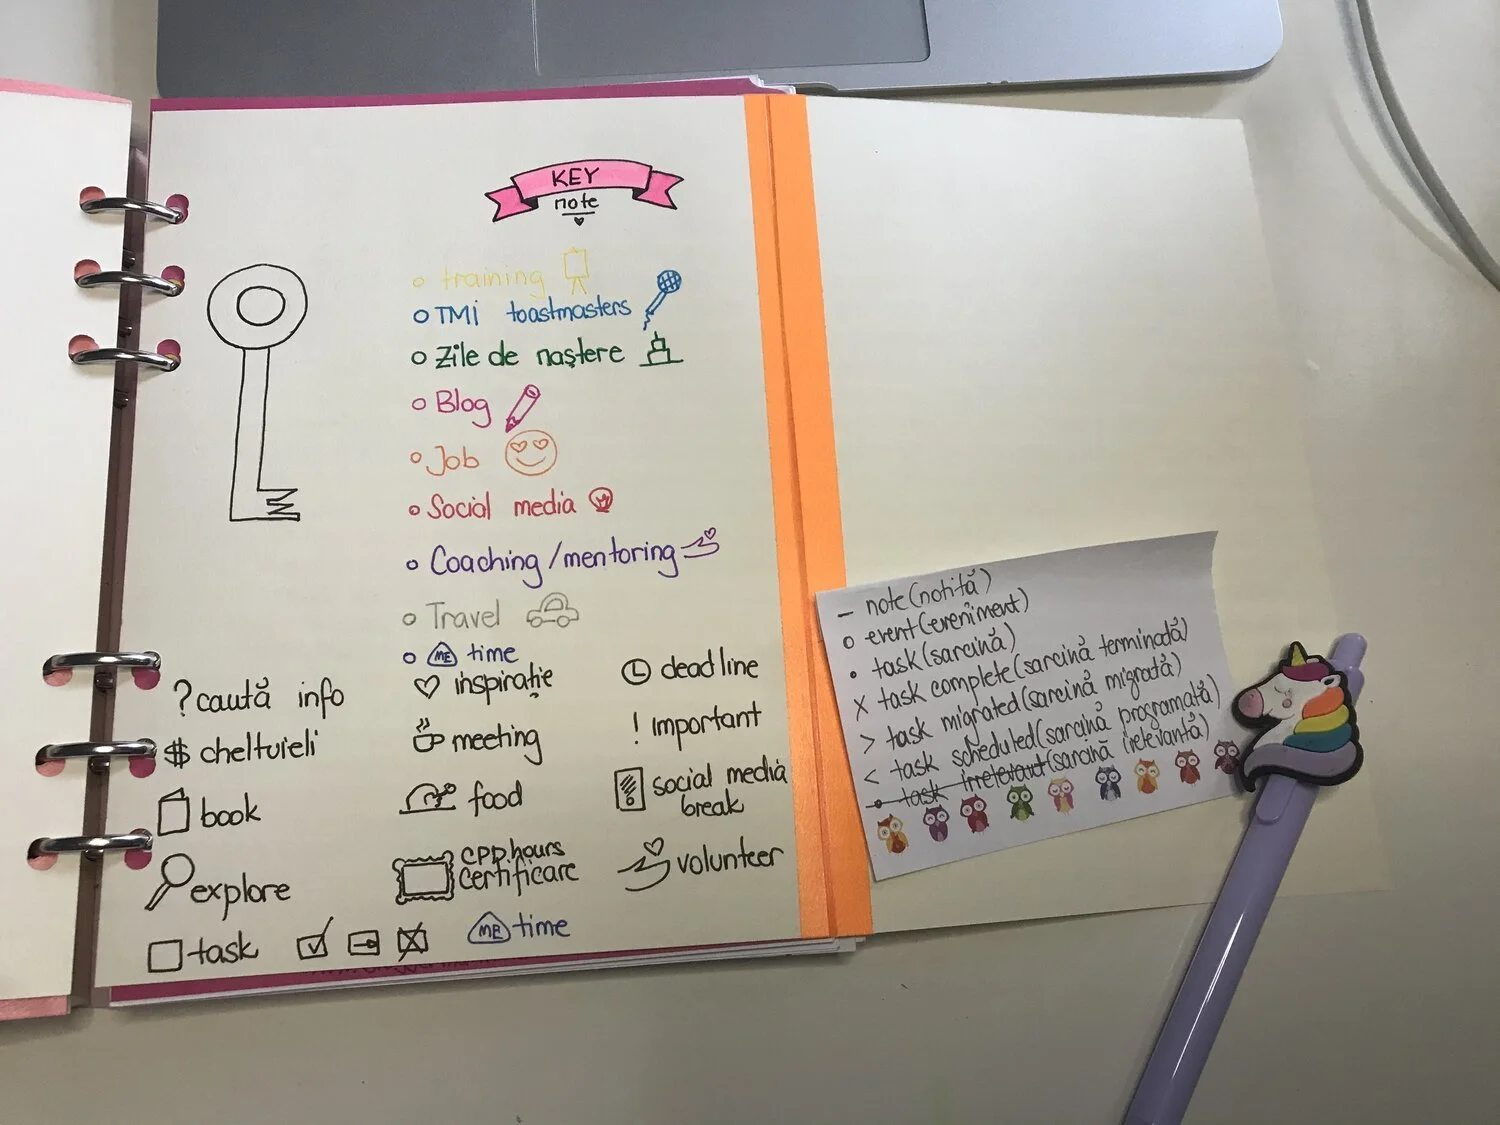 KEY
note
training
TMI toastmasters
Zile de naștere
Blog
Job
Social media
Coaching/mentoring
Travel
ME time
? caută info
$ cheltuieli
book
explore
task
inspirație
meeting
food
CPD hours
certificare
ME time
deadline
! important
social media
break
volunteer
– note (notiță)
o event (eveniment)
• task (sarcină)
x task complete (sarcină terminată)
> task migrated (sarcină migrată)
< task scheduled (sarcină programată)
• task irrelevant (sarcină irelevantă)